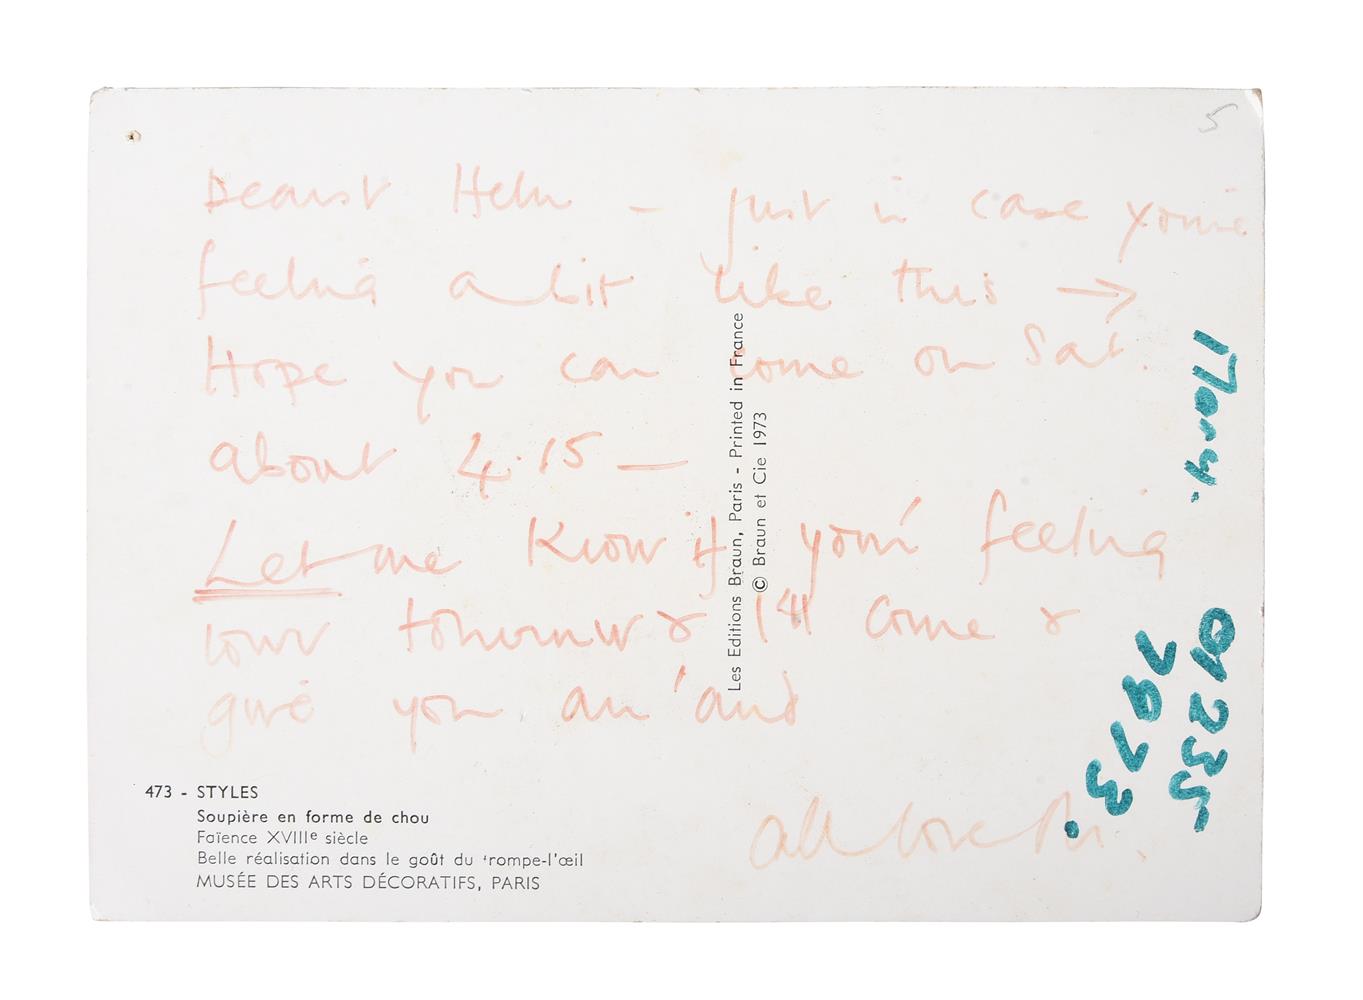 5
Dearest Helen – just in case you're
feeling a bit like this →
Hope you can come on Sat.
about 4.15 —
Let me know if you're feeling
low tomorrow & I'll come &
give you an 'and
all love
Les Editions Braun, Paris - Printed in France
© Braun et Cie 1973
01 235
7873.
473 - STYLES
Soupière en forme de chou
Faïence XVIIIe siècle
Belle réalisation dans le goût du 'rompe-l'œil
MUSÉE DES ARTS DÉCORATIFS, PARIS